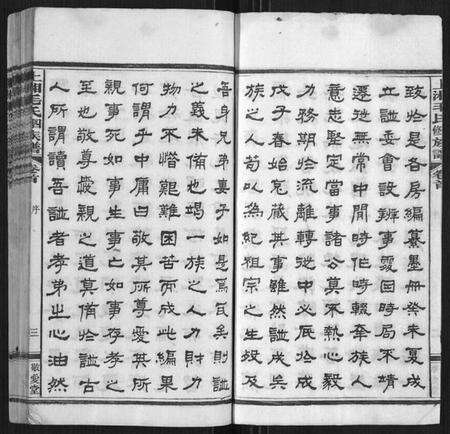 致於是各房編纂墨冊癸未夏成
立譜委會設辦事處因時局不靖
遷徙無常中間時作時輟幸族人
意志堅定當事諸公莫不熱心毅
力務期於流離轉徙中必底於成
戊子春始克蕆其事雖然譜成矣
族之人苟以為紀祖宗之生歿及
吾身兄弟妻子如是焉足矣則譜
之義未備也竭一族之人力財力
物力不惜艱難困苦而成此編果
何謂乎中庸曰敬其所尊愛其所
親事死如事生事亡如事存孝之
至也尊親之道莫備於譜古
人所謂讀吾譜者孝弟之心油然
上湘毛氏四修族譜 卷首 序 三 敬愛堂